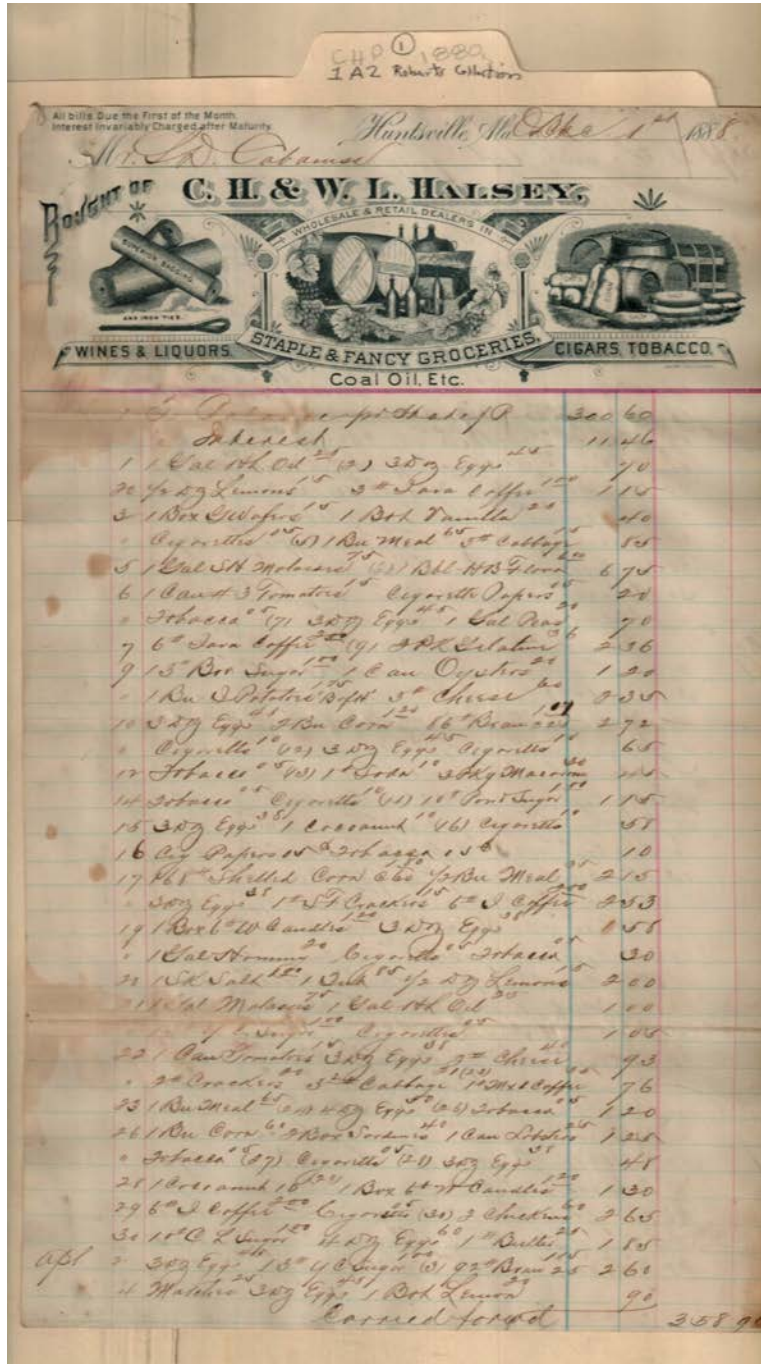 CHP ① 1889
1A2 Roberts Collection
All bills Due the First of the Month.
Interest Invariably Charged after Maturity.
Huntsville, Ala 1st 1888
Mr. S. D. Cabaniss
BOUGHT OF C. H. & W. L. HALSEY,
WHOLESALE & RETAIL DEALERS IN
SUPERIOR BAGGING
AND IRON TIES.
WINES & LIQUORS. STAPLE & FANCY GROCERIES, CIGARS, TOBACCO,
Coal Oil, Etc.
300 60
Interest 11 46
1 1 Gal Oil 25 (2) 3 Dz Eggs 45 70
1/2 Dz Lemons 15 3# Java Coffee 1 00 1 15
3 1 Box G Wafers 1 Bot Vanilla 20 40
" Cigarettes 05 (5) 1 Bu Meal 65 5# Cabbage 15 85
5 1 Gal SH Molasses 75 Bbl HB Flour 6 00 6 75
6 1 Can # 3 Tomatoes 15 Cigarette Papers 05 20
" Tobacco 05 (7) 3 Dz Eggs 45 1 Gal Peas 20 70
7 6# Java Coffee 2 00 (9) 2 PK Gelatine 36 2 36
9 13# Sugar 1 00 1 Can Oysters 20 1 20
" 1 Bu I Potatoes 1 75 3# Cheese 60 2 35
10 3 Dz Eggs 45 2 Bu Corn 1 20 86# Bran 1 07 2 72
" Cigarettes 10 (12) 3 Dz Eggs 45 Cigarettes 10 65
12 Tobacco 05 (13) 1# Soda 10 2 Pkg Macaroni 30 45
14 Tobacco 05 Cigarettes 10 10# Sugar 1 00 1 15
15 3 Dz Eggs 38 1 Cocoanut 10 (16) Cigarettes 10 58
16 Cig Papers 05 Tobacco 05 10
17 168# Shelled Corn 1/2 Bu Meal 35 2 15
" 3 Dz Eggs 38 1# Crackers 15 6# J Coffee 2 00 2 53
19 1 Box 6# W Candles 1 20 3 Dz Eggs 38 1 58
" 1 Gal Hominy 20 Cigarettes 05 Tobacco 05 30
1 SK Salt 1/2 Dz Lemons 15 2 00
21 1 Gal Molasses 75 1 Gal Oil 25 1 00
Sugar 1 00 Cigarettes 05 1 05
22 1 Can Tomatoes 15 3 Dz Eggs 38 2# Cheese 40 93
" 2# Crackers 3# Cabbage Coffee 76
23 1 Bu Meal 65 4 Dz Eggs 50 (26) Tobacco 05 1 20
26 1 Bu Corn 60 2 Box Sardines 40 1 Can Lobsters 25 1 25
" Tobacco 05 (27) Cigarettes 05 (28) 3 Dz Eggs 38 48
28 1 Cocoanut 10 1 Box 6# W Candles 1 20 1 30
29 6# J Coffee 2 00 Cigarettes 05 (30) 2 Chickens 60 2 65
30 10# C L Sugar 1 00 4 Dz Eggs 60 1# Butter 25 1 85
Apl 2 3 Dz Eggs 13# Y C Sugar 1 00 (3) 92# Bran 1 15 2 60
4 Matches 25 3 Dz Eggs 45 1 Bot Lemon 20 90
Carried forward 358